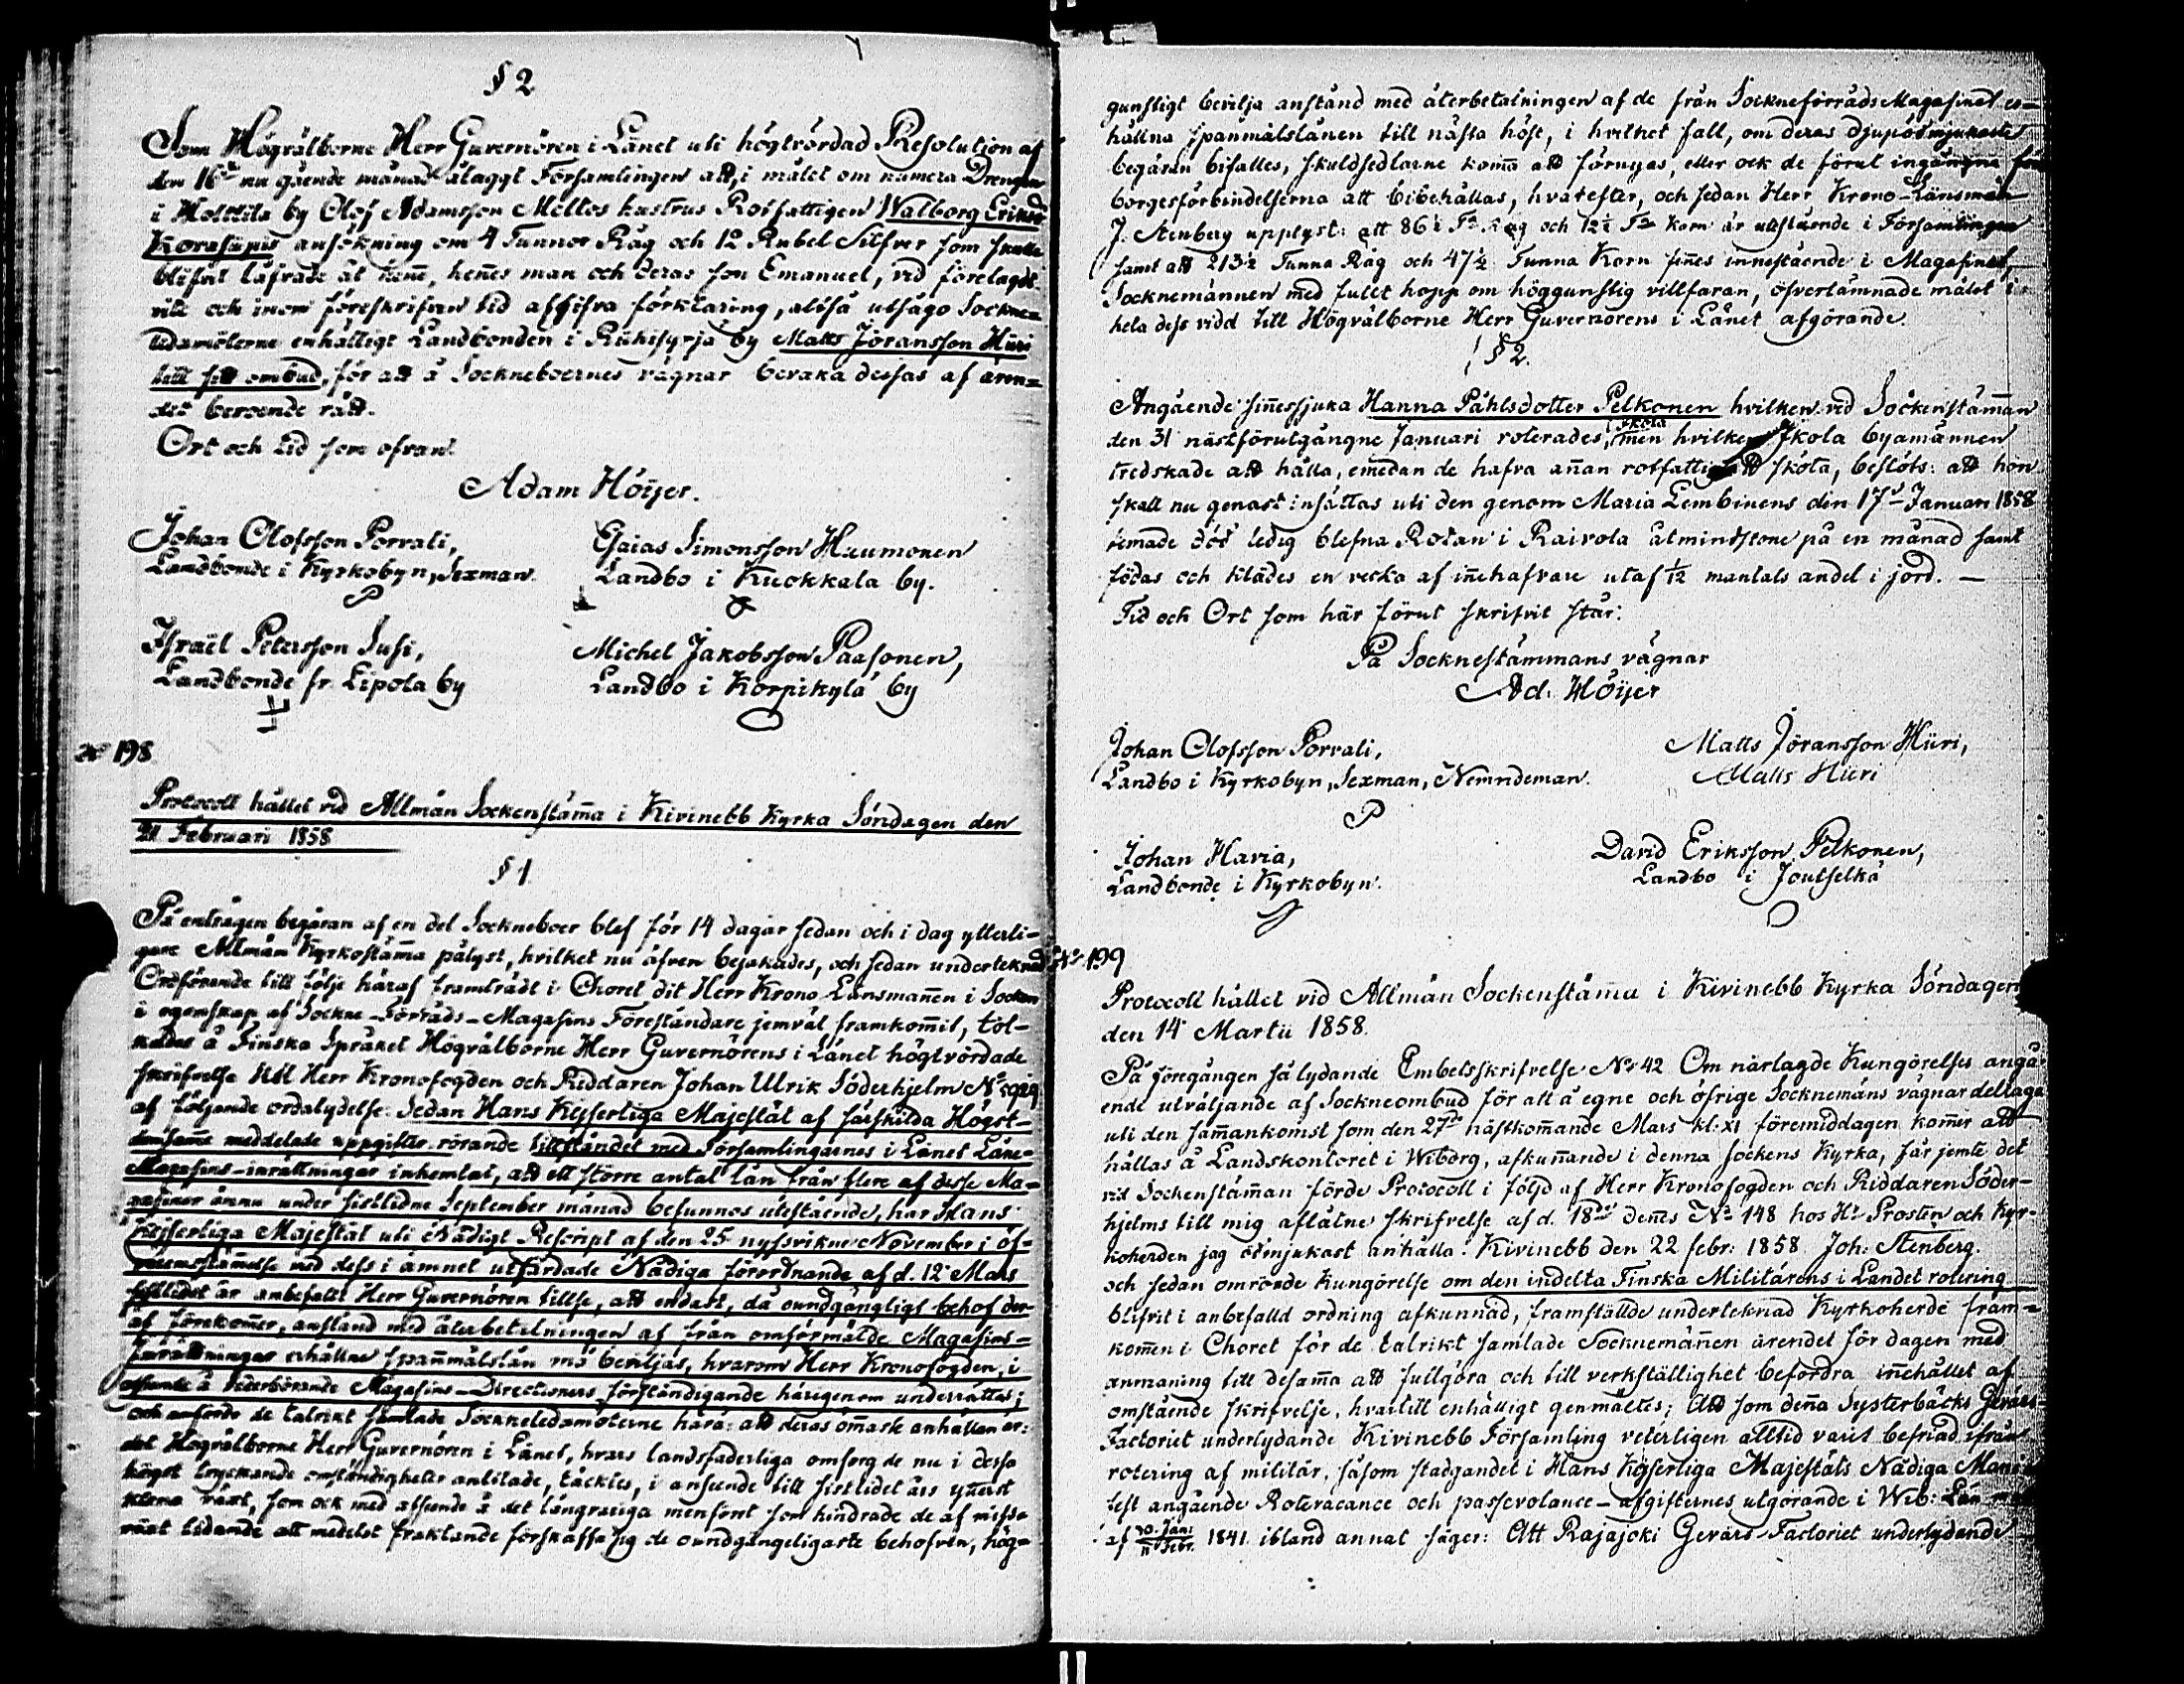 § 2
Som Högvälborne Herr Guvernören i Länet uti högtvördad Resolution af
den 16de nu gående månad ålaggt Församlingen att, i målet om numera Drengen
i Holttila by Olof Adamsson Mellos hustrus Rotfattigen Walborg Eriksd.
ansökning om 4 Tunnor Råg och 12 Rubel Silfver som skulle
blifvit låfvade åt hene, henes man och deras son Emanuel, vid förelagdt
vite och inom föreskrifven tid afgifva förklaring, altså utsågo Sockne-
ledamöterne enhälligt Landbonden i Riihisyrjä by Matts Jöransson Hiiri
till sitt ombud, för att å Sockneboernes vägnar bevaka dessas af ären-
det beroende rätt.
Ort och tid som ofvan.
Adam Höijer.
Johan Olofsson Porvali,
Landbonde i Kyrkobyn, Sexman.
Esaias Simonsson Huumonen
Landbo i Kuokkala by.
Israël Petersson Susi,
Landbonde fr. Lipola by
Michel Jakobsson Paasonen,
Landbo i Korpikylä by
No 198
Protocoll hållet vid Allmän Sockenstäma i Kivinebb Kyrka Söndagen den
21 Februari 1858
§ 1.
På enträgen begäran af en del Sockneboer blef för 14 dagar sedan och i dag ytterli-
gare Allmän Kyrkostäma pålyst, hvilket nu äfven bejakades, och sedan undertecknad
Ordförande till följe häraf framträdt i Choret dit Herr Krono Länsmanen i Socken
i egenskap af Sockne-Förråds-Magasins Föreståndare jemväl framkomit, tol-
kades å Finska Språket Högvälborne Herr Guvernörens i Länet högtvördade
skrifvelse till Herr Kronofogden och Riddaren Johan Ulrik Söderhjelm No
af följande ordalydelse: Sedan Hans Kejserliga Majestät af särskilda Högst-
densame meddelade uppgifter rörande tillståndet med Församlingarnes i Länet Låne-
Magasins-inrättningar inhemtat, att ett större antal lån från flere af desse Ma-
gasiner ännu under sistlidne September månad befunnos utestående, har Hans
Kejserliga Majestät uti Nådigt Rescript af den 25 nyssvikne November i öf-
verensstämelse med dess i ämnet utfärdade Nådiga förordnande af d. 12 Mars
sistlidet år anbefallt Herr Guvernören tillse, att endast, då oundgängligt behof der-
af förekomer, anstånd med återbetalningen af från omförmälde Magasins-
inrättningar erhållne spanmålslån må beviljas, hvarom Herr Kronofogden, i
afseende å Vederbörande Magasins-Directioners förständigande härigenom underrättas;
och anförde de talrikt samlade Sockneledamöterne härå: att deras ömask anhållan är:
det Högvälborne Herr Guvernören i Länet, hvars landsfaderliga omsorg de nu i dessa
högst tryckande omständigheter anlitade, täcktes, i anseende till sistlidet års ynest
klena växt, som ock med afseende å det långvariga menföret som hindrade de af missv
växt lidande att medelst fraktande förskaffa sig de oundgängeligaste behofven, hög-
gunstigt bevilja anstånd med återbetalningen af de från SockneförrådsMagasinet er-
hållna spanmålslånen till nästa höst, i hvilket fall, om deras djupödmjukaste
begäran bifalles, skuldsedlarne koma att förnyas, eller ock de förut ingångna för-
borgesförbindelserna att bibehållas, hvarefter, och sedan Herr Krono-Länsman
J. Stenberg upplyst: att 86½ Tr Råg och 12½ Tr Korn är utestående i Församlingen
samt att 213½ Tunna Råg och 47½ Tunna Korn fines innestående i Magasinet,
Socknemännen med fullt hopp om höggunstig villfaran, öfverlämnade målet i
hela dess vidd till Högvälborne Herr Guvernörens i Länet afgörande.
§ 2.
Angående sinessjuka Hanna Påhlsdotter Pelkonen hvilken vid Sockenstäman
den 31 nästförutgångne Januari roterades, men hvilken Skola byamännen
tredskade att hålla, emedan de hafva anan rotfattig att sköta, beslöts: att hon
skall nu genast insättas uti den genom Maria Lembinens den 17de Januari 1858
timade död ledig blefna Rotan i Raivola åtminstone på en månad samt
födas och klädes en vecka af inehafvare utaf 1/12 mantals andel i jord. —
Tid och Ort som här förut skrifvit står:
På Socknestämmans vägnar
Ad. Höijer
Johan Olofsson Porvali,
Landbo i Kyrkobyn, Sexman, Nemndeman.
Matts Jöransson Hiiri,
Matts Hiiri
Johan Havia,
Landbonde i Kyrkobyn.
David Eriksson Pelkonen,
Landbo i Joutselkä
No 199
Protocoll hållet vid Allmän Sockenstäma i Kivinebb Kyrka Söndagen
den 14 Martii 1858.
På föregången så lydande Embetsskrifvelse No 42 Om närlagde Kungörelses angå-
ende utväljande af Sockneombud för att å egne och öfrige Socknemäns vägnar deltaga
uti den samankomst som den 27de nästkomande Mars kl. XI föremiddagen komer att
hållas å Landskontoret i Wiborg, afkunande i denna sockens Kyrka, får jemte det
vid Sockenstäman förde Protocoll i följd af Herr Kronofogden och Riddaren Söder-
hjelms till mig aflåtne skrifvelse af d. 18de denes No 148 hos Hr Prosten och Kyr-
koherden jag ödmjukast anhålla. Kivinebb den 22 febr: 1858 Joh: Stenberg.
och sedan omrörde kungörelse om den indelta Finska Militärens i Landet rotering
blifvit i anbefalld ordning afkunnad, framställde underteknad Kyrkoherde fram-
komen i Choret för de talrikt samlade Socknemänen ärendet för dagen med
anmaning till desama att fullgöra och till verkställighet befordra inehållet af
omstående skrifvelse, hvartill enhälligt genmältes; Att som dena Systerbäcks Gevärs-
Factoriet underlydande Kivinebb Församling veterligen alltid varit befriad ifrån
rotering af militär, såsom stadgandet i Hans Kejserliga Majestäts Nådiga Mani-
fest angående Rotevacance och passevolance-afgifternes utgörande i Wib: Län
af 30 Jan/11 Febr. 1841 ibland annat säger: Att Rajajoki Gevärs-Factoriet underlydande